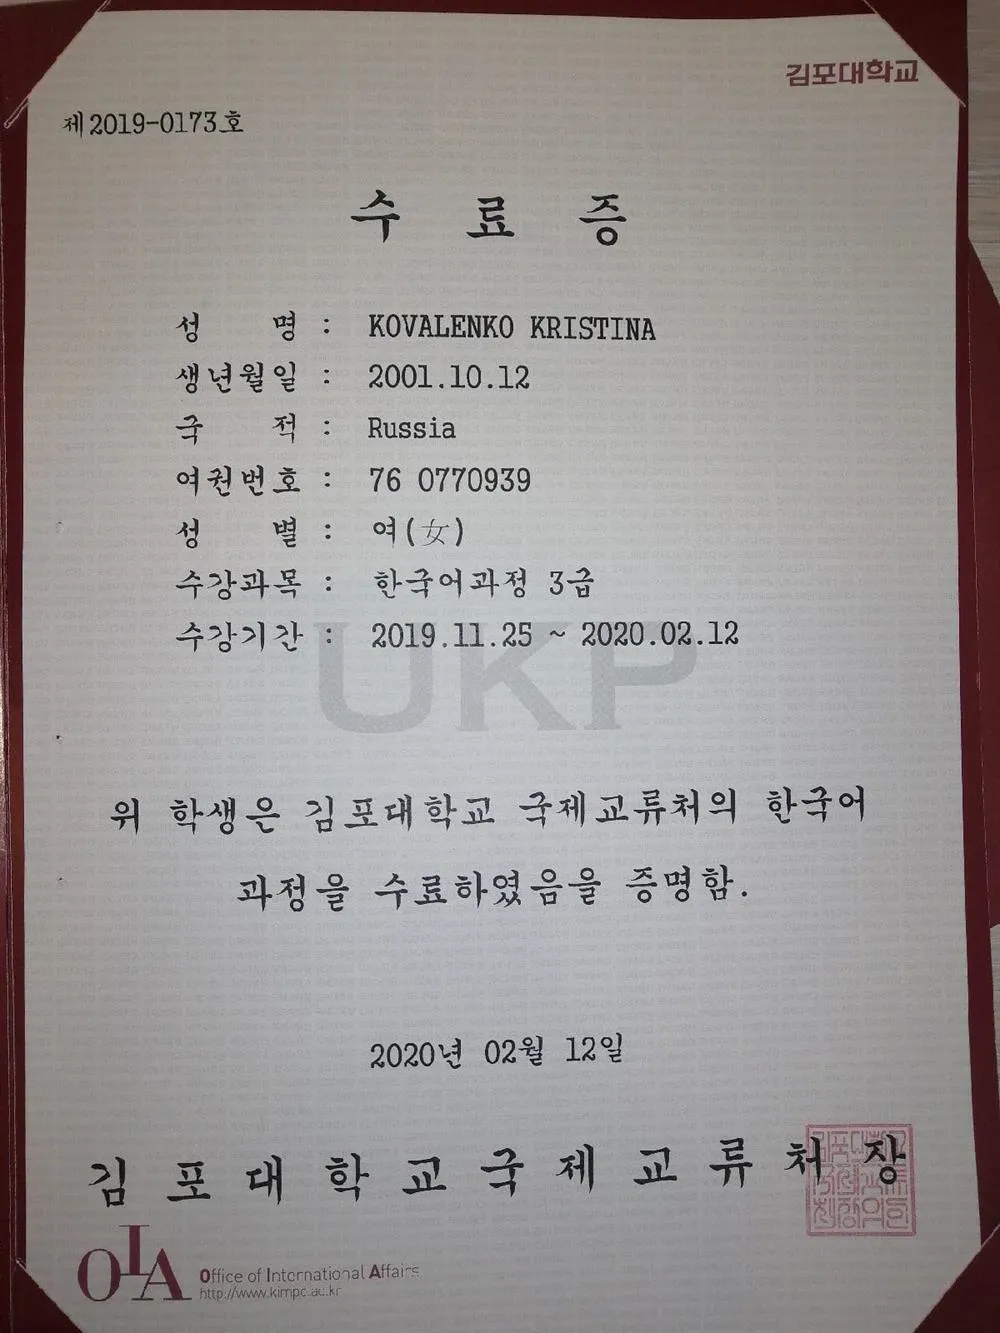 김포대학교
제2019-0173호
수 료 증
성 명 : KOVALENKO KRISTINA
생년월일 : 2001.10.12
국 적 : Russia
여권번호 : 76 0770939
성 별 : 여(女)
수강과목 : 한국어과정 3급
수강기간 : 2019.11.25 ~ 2020.02.12
UKP
위 학생은 김포대학교 국제교류처의 한국어
과정을 수료하였음을 증명함.
2020년 02월 12일
김 포 대 학 교 국 제 교 류 처 장
OIA
Office of International Affairs
http://www.kimpc.ac.kr